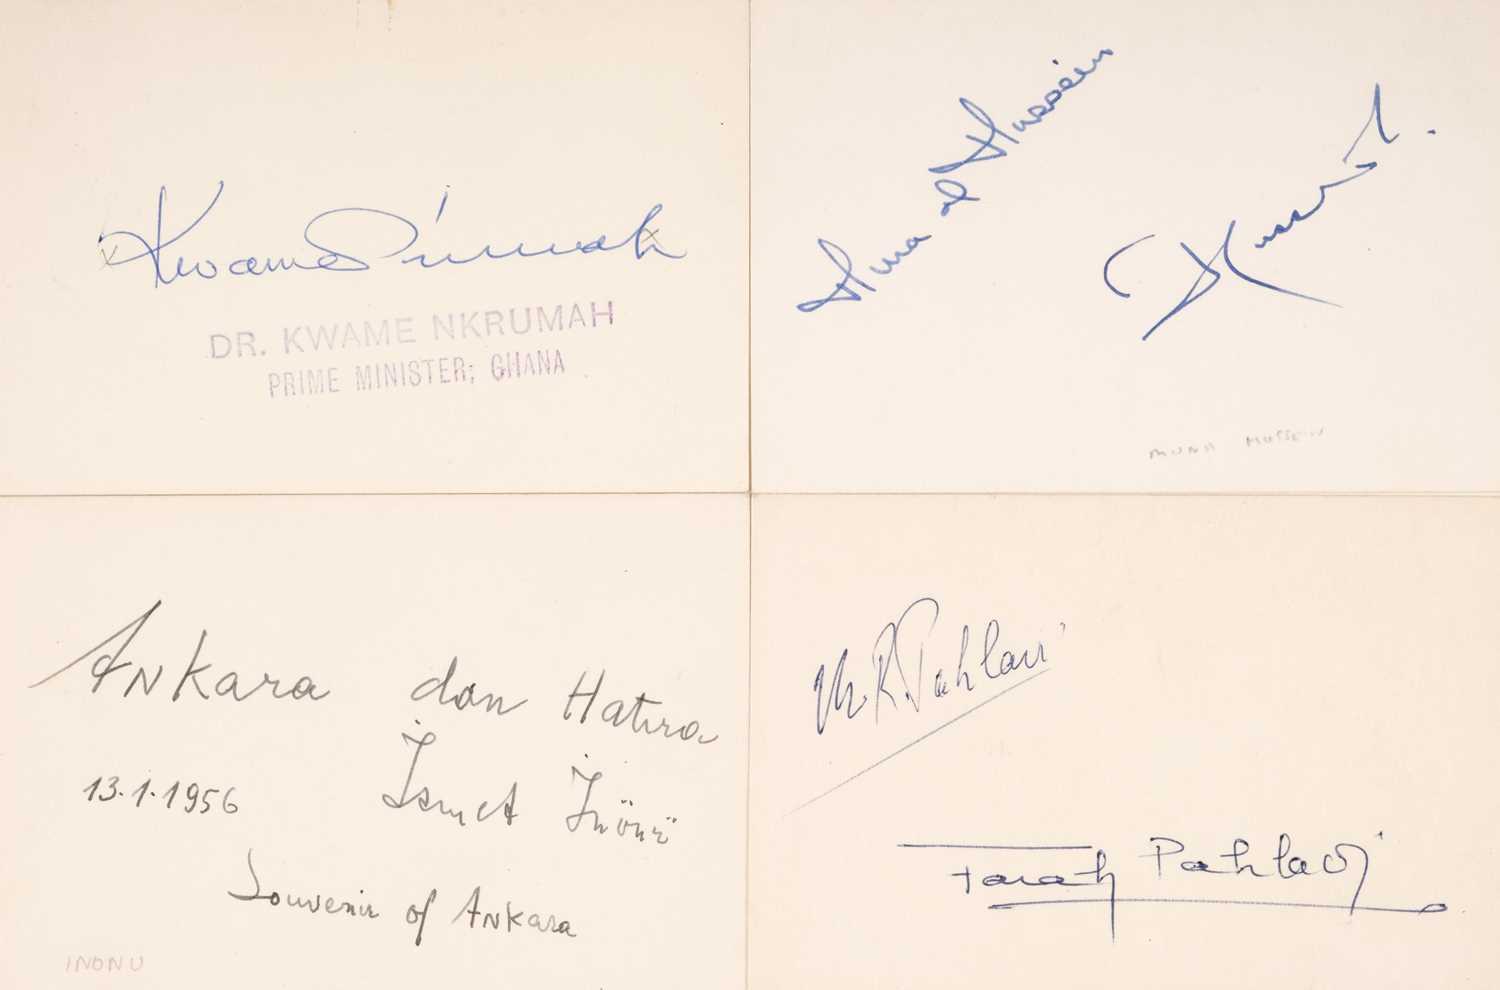 Kwame Nkrumah
DR. KWAME NKRUMAH
PRIME MINISTER; GHANA
Muna al Hussein
Hussein
MUNA HUSSEIN
Ankara dan Hatıra
13.1.1956 İsmet İnönü
Souvenir of Ankara
INONU
M.R. Pahlavi
Farah Pahlavi